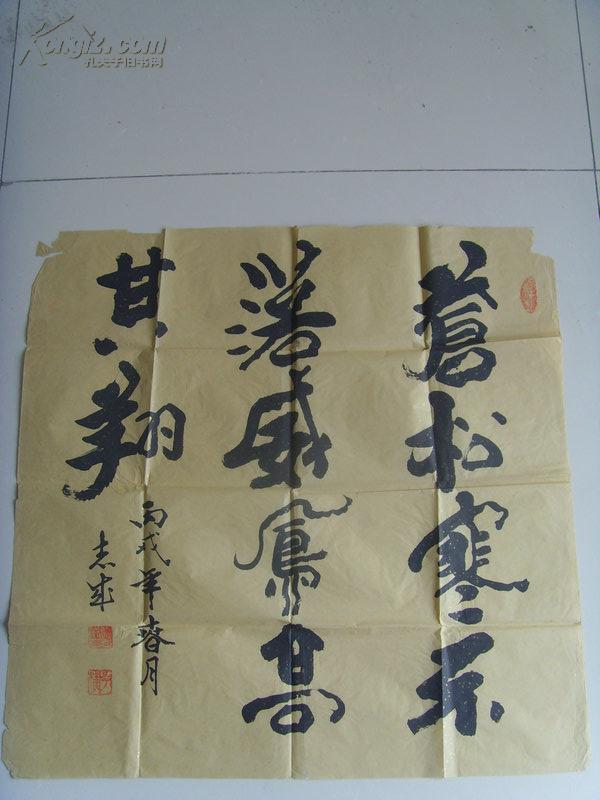 蒼松寒不
落威鳳高
其翔
丙戌年春月
志成
Kongfz.com
孔夫子旧书网